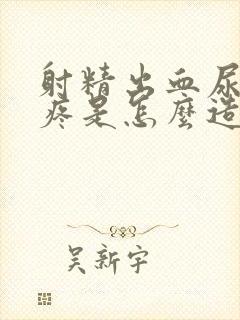 射精出血尿
疼是怎麼造
吴新宇